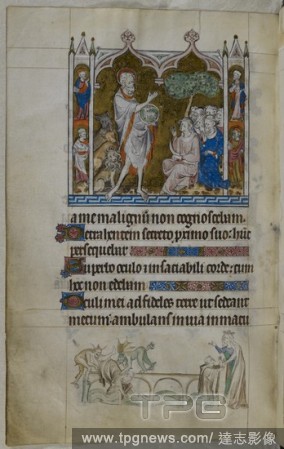 a me malignū non cognoscebam.
Detrahentem secreto primo suo: hūc
persequebar
Superbo oculo ⁊ insaciabili corde: cum
hoc non edebam
Oculi mei ad fideles terre ut sedeant
mecum: ambulans in via inmacu
TPG
www.tpgnews.com/ 達志影像